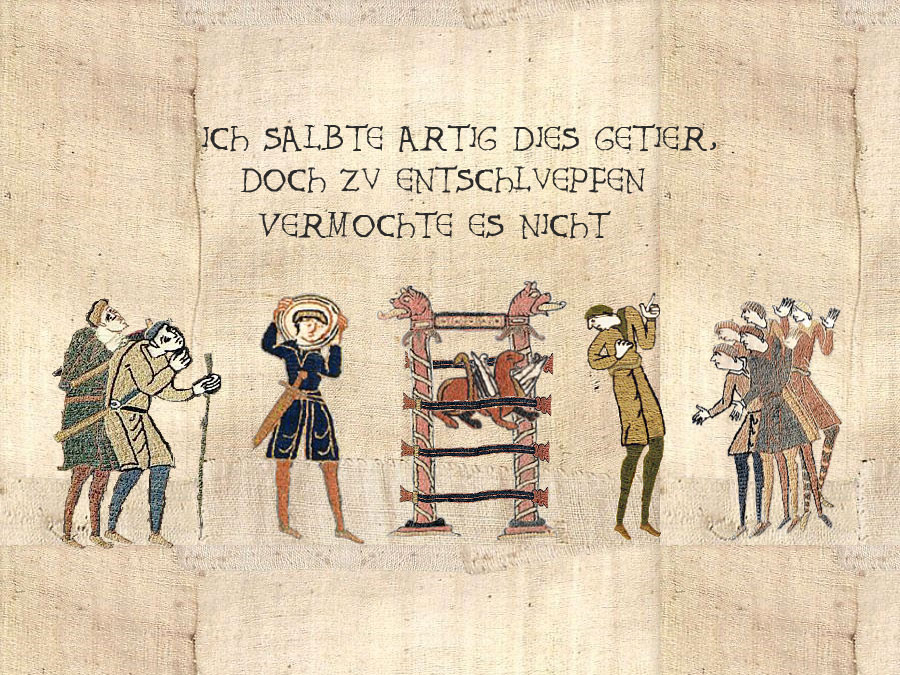 ICH SALBTE ARTIG DIES GETIER,
DOCH ZV ENTSCHLVEPFEN
VERMOCHTE ES NICHT